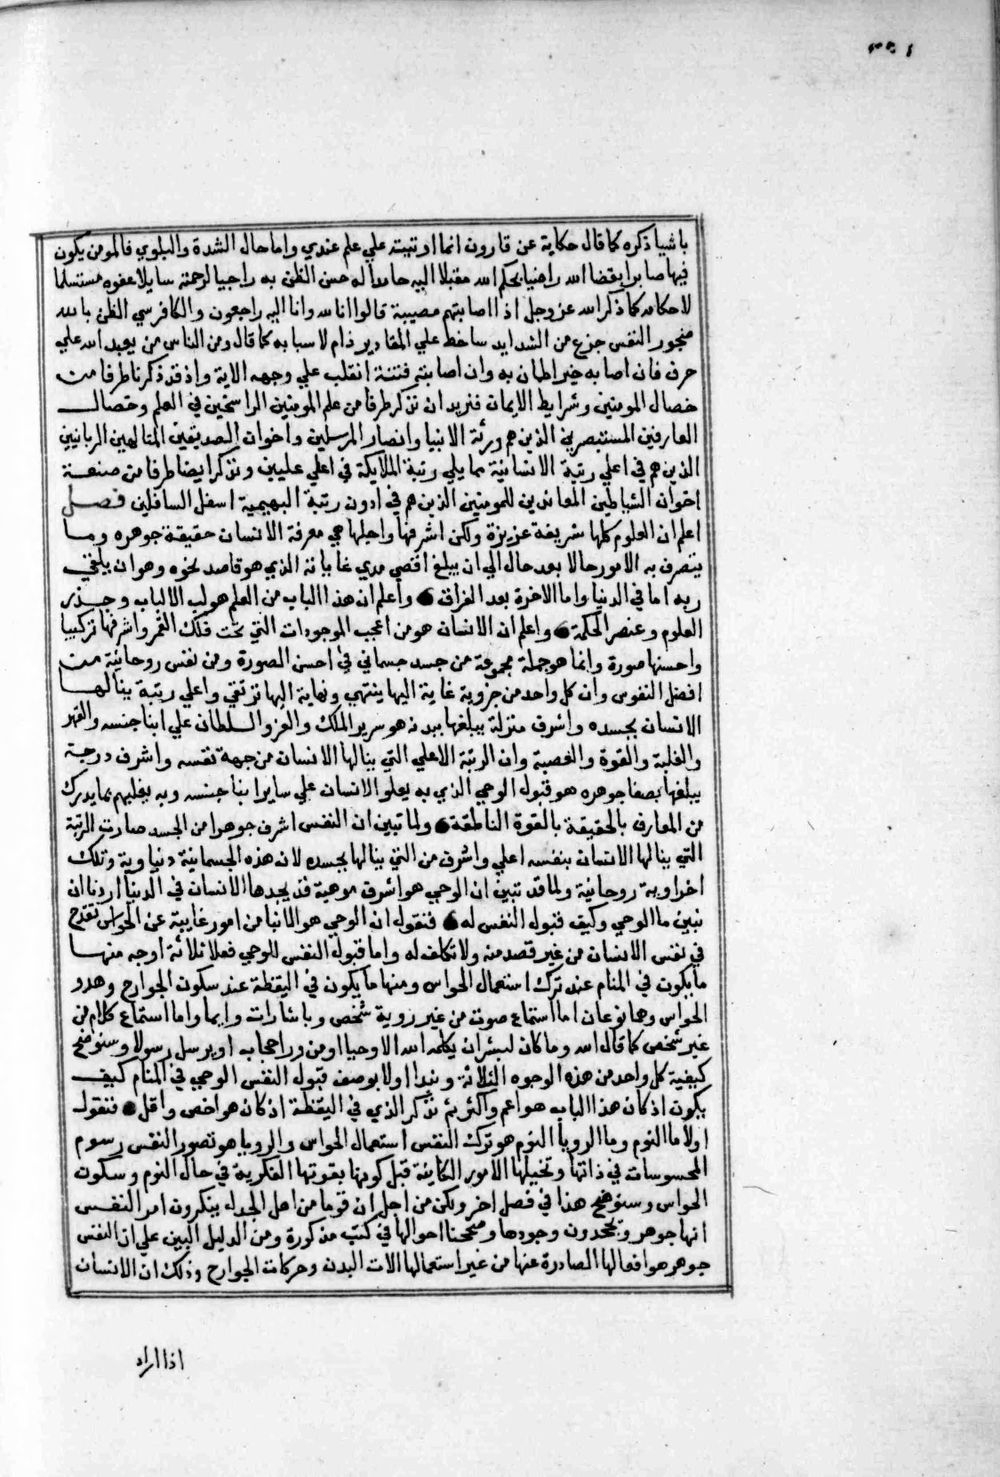 باشيا ذكره كما قال حكاية عن قارون انما اوتيته علي علم عندي واما حال الشدة والبلوي فالمومن يكون
فيها صابرا بقضا الله راضيا بحكم الله مقبلا اليه حامدا له حسن الظن به راجيا لرحمته سايلا عفوه مستسلما
لاحكامه كما ذكر الله عز وجل اذا اصابتهم مصيبة قالوا انا لله وانا اليه راجعون والكافر سي الظن بالله
منجور النفس جزع من الشدايد ساخط علي المقادير ذام لاسبابه كما قال ومن الناس من يعبد الله علي
حرف فان اصابه خير اطمان به وان اصابته فتنة انقلب علي وجهه الاية واذ قد ذكرنا طرفا من
خصال المومنين وشرايط الايمان فنريد ان نذكر طرفا من علم المومنين الراسخين في العلم وخصال
العارفين المستبصرين الذين هم ورثة الانبيا وانصار المرسلين واخوان الصديقين المتالهين الربانيين
الذين هم في اعلي رتبة الانسانية مما يلي رتبة الملايكة في اعلي عليين ونذكر ايضا طرفا من صنعة
اخوان الشياطين المعاندين للمومنين الذين هم في ادون رتبة البهيمية اسفل السافلين فصل
اعلم ان العلوم كلها شريفة عزيزة ولكن اشرفها واجلها هي معرفة الانسان حقيقة جوهره وما
يتصرف به الامور حالا بعد حال الي ان يبلغ اقصي مدي غاياته الذي هو قاصد نحوه وهو ان يلقي
ربه اما في الدنيا واما الاخرة بعد الفراق واعلم ان هذا الباب من العلم هو لب الالباب وجذر
العلوم وعنصر الحكمة واعلم ان الانسان هو من اعجب الموجودات التي تحت فلك القمر واشرفها تركيبا
واحسنها صورة وانما هو جملة مجموعة من جسد جسماني في احسن الصورة ومن نفس روحانية من
افضل النفوس وان كل واحد من جزويه غاية اليها ينتهي ونهاية اليها ترتقي واعلي رتبة ينالها
الانسان بجسده واشرف منزلة يبلغها ببدنه هو سرير الملك والعز والسلطان علي ابنا جنسه والقهر
والغلبة والقوة والغضبة وان الرتبة الاعلي التي ينالها الانسان من جهة نفسه واشرف درجة
يبلغها بصفا جوهره هو قبول الوحي الذي به يعلو الانسان علي ساير ابنا جنسه وبه يغلبهم بما يدرك
من المعارف بالحقيقة بالقوة الناطقة ولما تبين ان النفس اشرف جوهرا من الجسد صارت الرتبة
التي ينالها الانسان بنفسه اعلي واشرف من التي ينالها بجسده لان هذه الجسمانية دنياوية وتلك
اخراوية روحانية ولما قد تبين ان الوحي هو اشرف موهبة قد يجدها الانسان في الدنيا اردنا ان
نبين ما الوحي وكيف قبول النفس له فنقول ان الوحي هو الانبا من امور غايبة عن الحواس تقدح
في نفس الانسان من غير قصد منه ولا تكلف له واما قبول النفس للوحي فعلا ثلاثة اوجه منها
ما يكون في المنام عند ترك استعمال الحواس ومنها ما يكون في اليقظة عند سكون الجوارح وهدو
الحواس وهما نوعان اما استماع صوت من غير روية شخص وباشارات وايما واما استماع كلام من
غير شخص كما قال الله وما كان لبشر ان يكلمه الله الا وحيا او من ورا حجاب او يرسل رسولا وسنوضح
كيفية كل واحد من هذه الوجوه الثلاثة ونبدا اولا بوصف قبول النفس الوحي في المنام كيف
يكون اذ كان هذا الباب هو اعم واكثر ثم نذكر الذي في اليقظة اذ كان هو اخص واقل فنقول
اولا ما النوم وما الرويا النوم هو ترك النفس استعمال الحواس والرويا هو تصور النفس رسوم
المحسوسات في ذاتها وتخيلها الامور الكاينة قبل كونها بقوتها الفكرية في حال النوم وسكون
الحواس وسنوضح هذا في فصل اخر ولكن من اجل ان قوما من اهل الجدل ينكرون امر النفس
انها جوهر ويجحدون وجودها وصححنا احوالها في كتب مذكورة ومن الدليل البين علي ان النفس
جوهر هو افعالها الصادرة عنها من غير استعمالها الات البدن وحركات الجوارح وذلك ان الانسان
اذا اراد